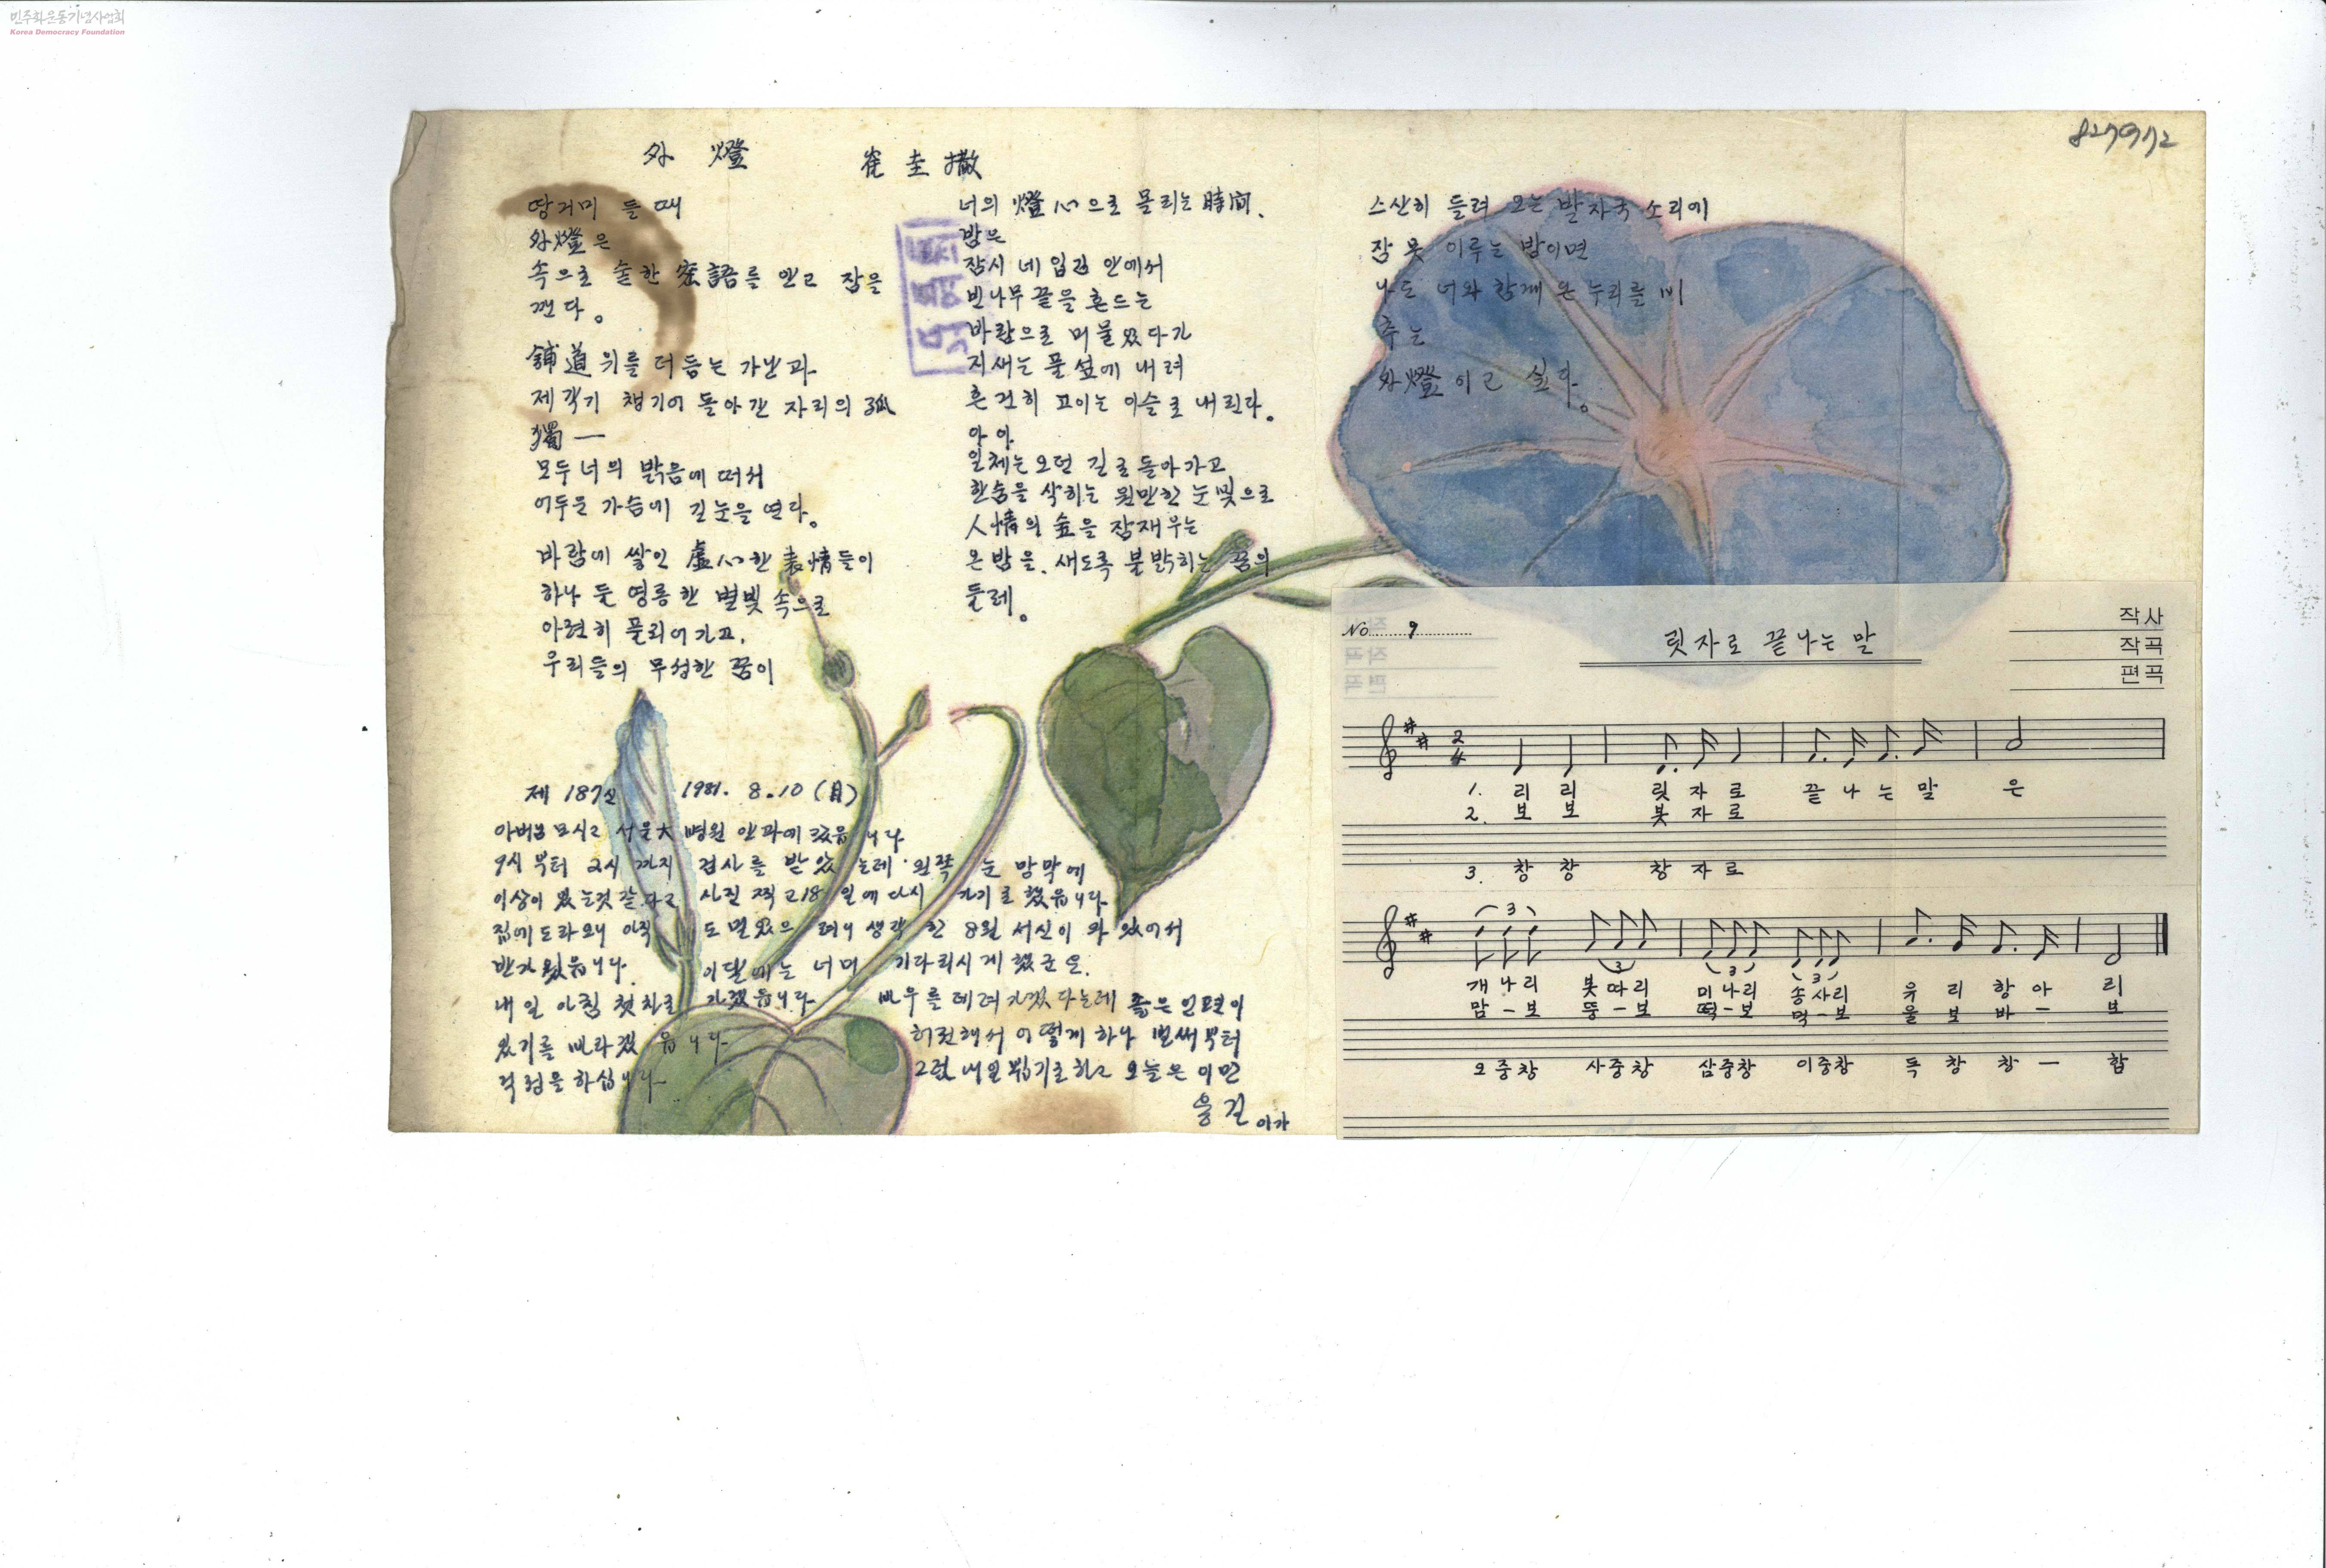 민주화운동기념사업회
Korea Democracy Foundation
外燈
땅거미 들 때
外燈은
속으로 숱한 密語를 안고 잠을
깬다。
鋪道 위를 더듬는 가난과
제각기 챙기어 돌아간 자리의 孤
獨—
모두 너의 밝음에 떠서
어두운 가슴에 긴 눈을 연다。
바람에 쌓인 虛心한 表情들이
하나 둘 영롱한 별빛 속으로
아련히 풀리어가고,
우리들의 무성한 꿈이
너의 燈心으로 몰리는 時間.
밤은
잠시 네 입김 안에서
빈나무 끝을 흔드는
바람으로 머물었다가
지새는 풀섶에 내려
흔건히 고이는 이슬로 내린다。
아아
일체는 오던 길로 돌아가고
한숨을 삭히는 원만한 눈빛으로
人情의 숲을 잠재우는
온밤을. 새도록 불밝히는 꿈의
둘레。
스산히 들려 오는 발자국 소리에
잠 못 이루는 밤이면
나도 너와 함께 온 누리를 비
추는
外燈이고 싶다。
제 187신 1981. 8.10 (月)
아버님 모시고 서울大 병원 안과에 갔읍니다
9시 부터 2시 까지 검사를 받았는데 왼쪽 눈 망막에
이상이 있는것 같다고 사진 찍고 18일에 다시 가기로 했읍니다
집에 도라오니 아직도 멀었으려니 생각한 8월 서신이 와 있어서
반가웠읍니다. 이달에는 너머 기다리시게 했군요.
내일 아침 첫차로 가겠읍니다 바우를 데려가겠다는데 좋은 인편이
있기를 바라겠읍니다 허전해서 어떻게 하나 벌써부터
걱정을 하십니다 그럼 내일 뵙기로 하고 오늘은 이만
이가
No. 9
릿자로 끝나는 말
작사
작곡
편곡
2/4
1. 리 리 릿 자 로 끝 나 는 말 은
2. 보 보 봇 자 로
3. 창 창 창 자 로
3 3 3 3
개나리 봇따리 미나리 송사리 유 리 항 아 리
맘-보 뚱-보 떡-보 먹-보 울 보 바 - 보
오중창 사중창 삼중창 이중창 독 창 창 — 합